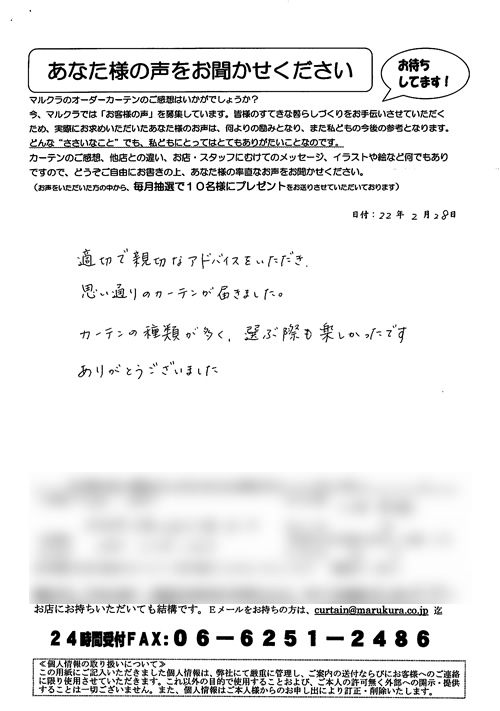 あなた様の声をお聞かせください
お待ち
してます！
マルクラのオーダーカーテンのご感想はいかがでしょうか？
今、マルクラでは「お客様の声」を募集しています。皆様のすてきな暮らしづくりをお手伝いさせていただく
ため、実際にお求めいただいたあなた様のお声は、何よりの励みとなり、また私どもの今後の参考となります。
どんな“ささいなこと”でも、私どもにとってはとてもありがたいことなのです。
カーテンのご感想、他店との違い、お店・スタッフにむけてのメッセージ、イラストや絵など何でもあり
ですので、どうぞご自由にお書きの上、あなた様の率直なお声をお聞かせください。
（お声をいただいた方の中から、毎月抽選で１０名様にプレゼントをお送りさせていただいております）
日付：22年 2月 28日
適切で親切なアドバイスをいただき、
思い通りのカーテンが届きました。
カーテンの種類が多く、選ぶ際も楽しかったです
ありがとうございました
お店にお持ちいただいても結構です。Ｅメールをお持ちの方は、curtain@marukura.co.jp 迄
２４時間受付ＦＡＸ：０６－６２５１－２４８６
≪個人情報の取り扱いについて≫
この用紙にご記入いただきました個人情報は、弊社にて厳重に管理し、ご案内の送付ならびにお客様へのご連絡
に限り使用させていただきます。これ以外の目的で使用することおよび、ご本人の許可無く外部への開示・提供
することは一切ございません。また、個人情報はご本人様からのお申し出により訂正・削除いたします。